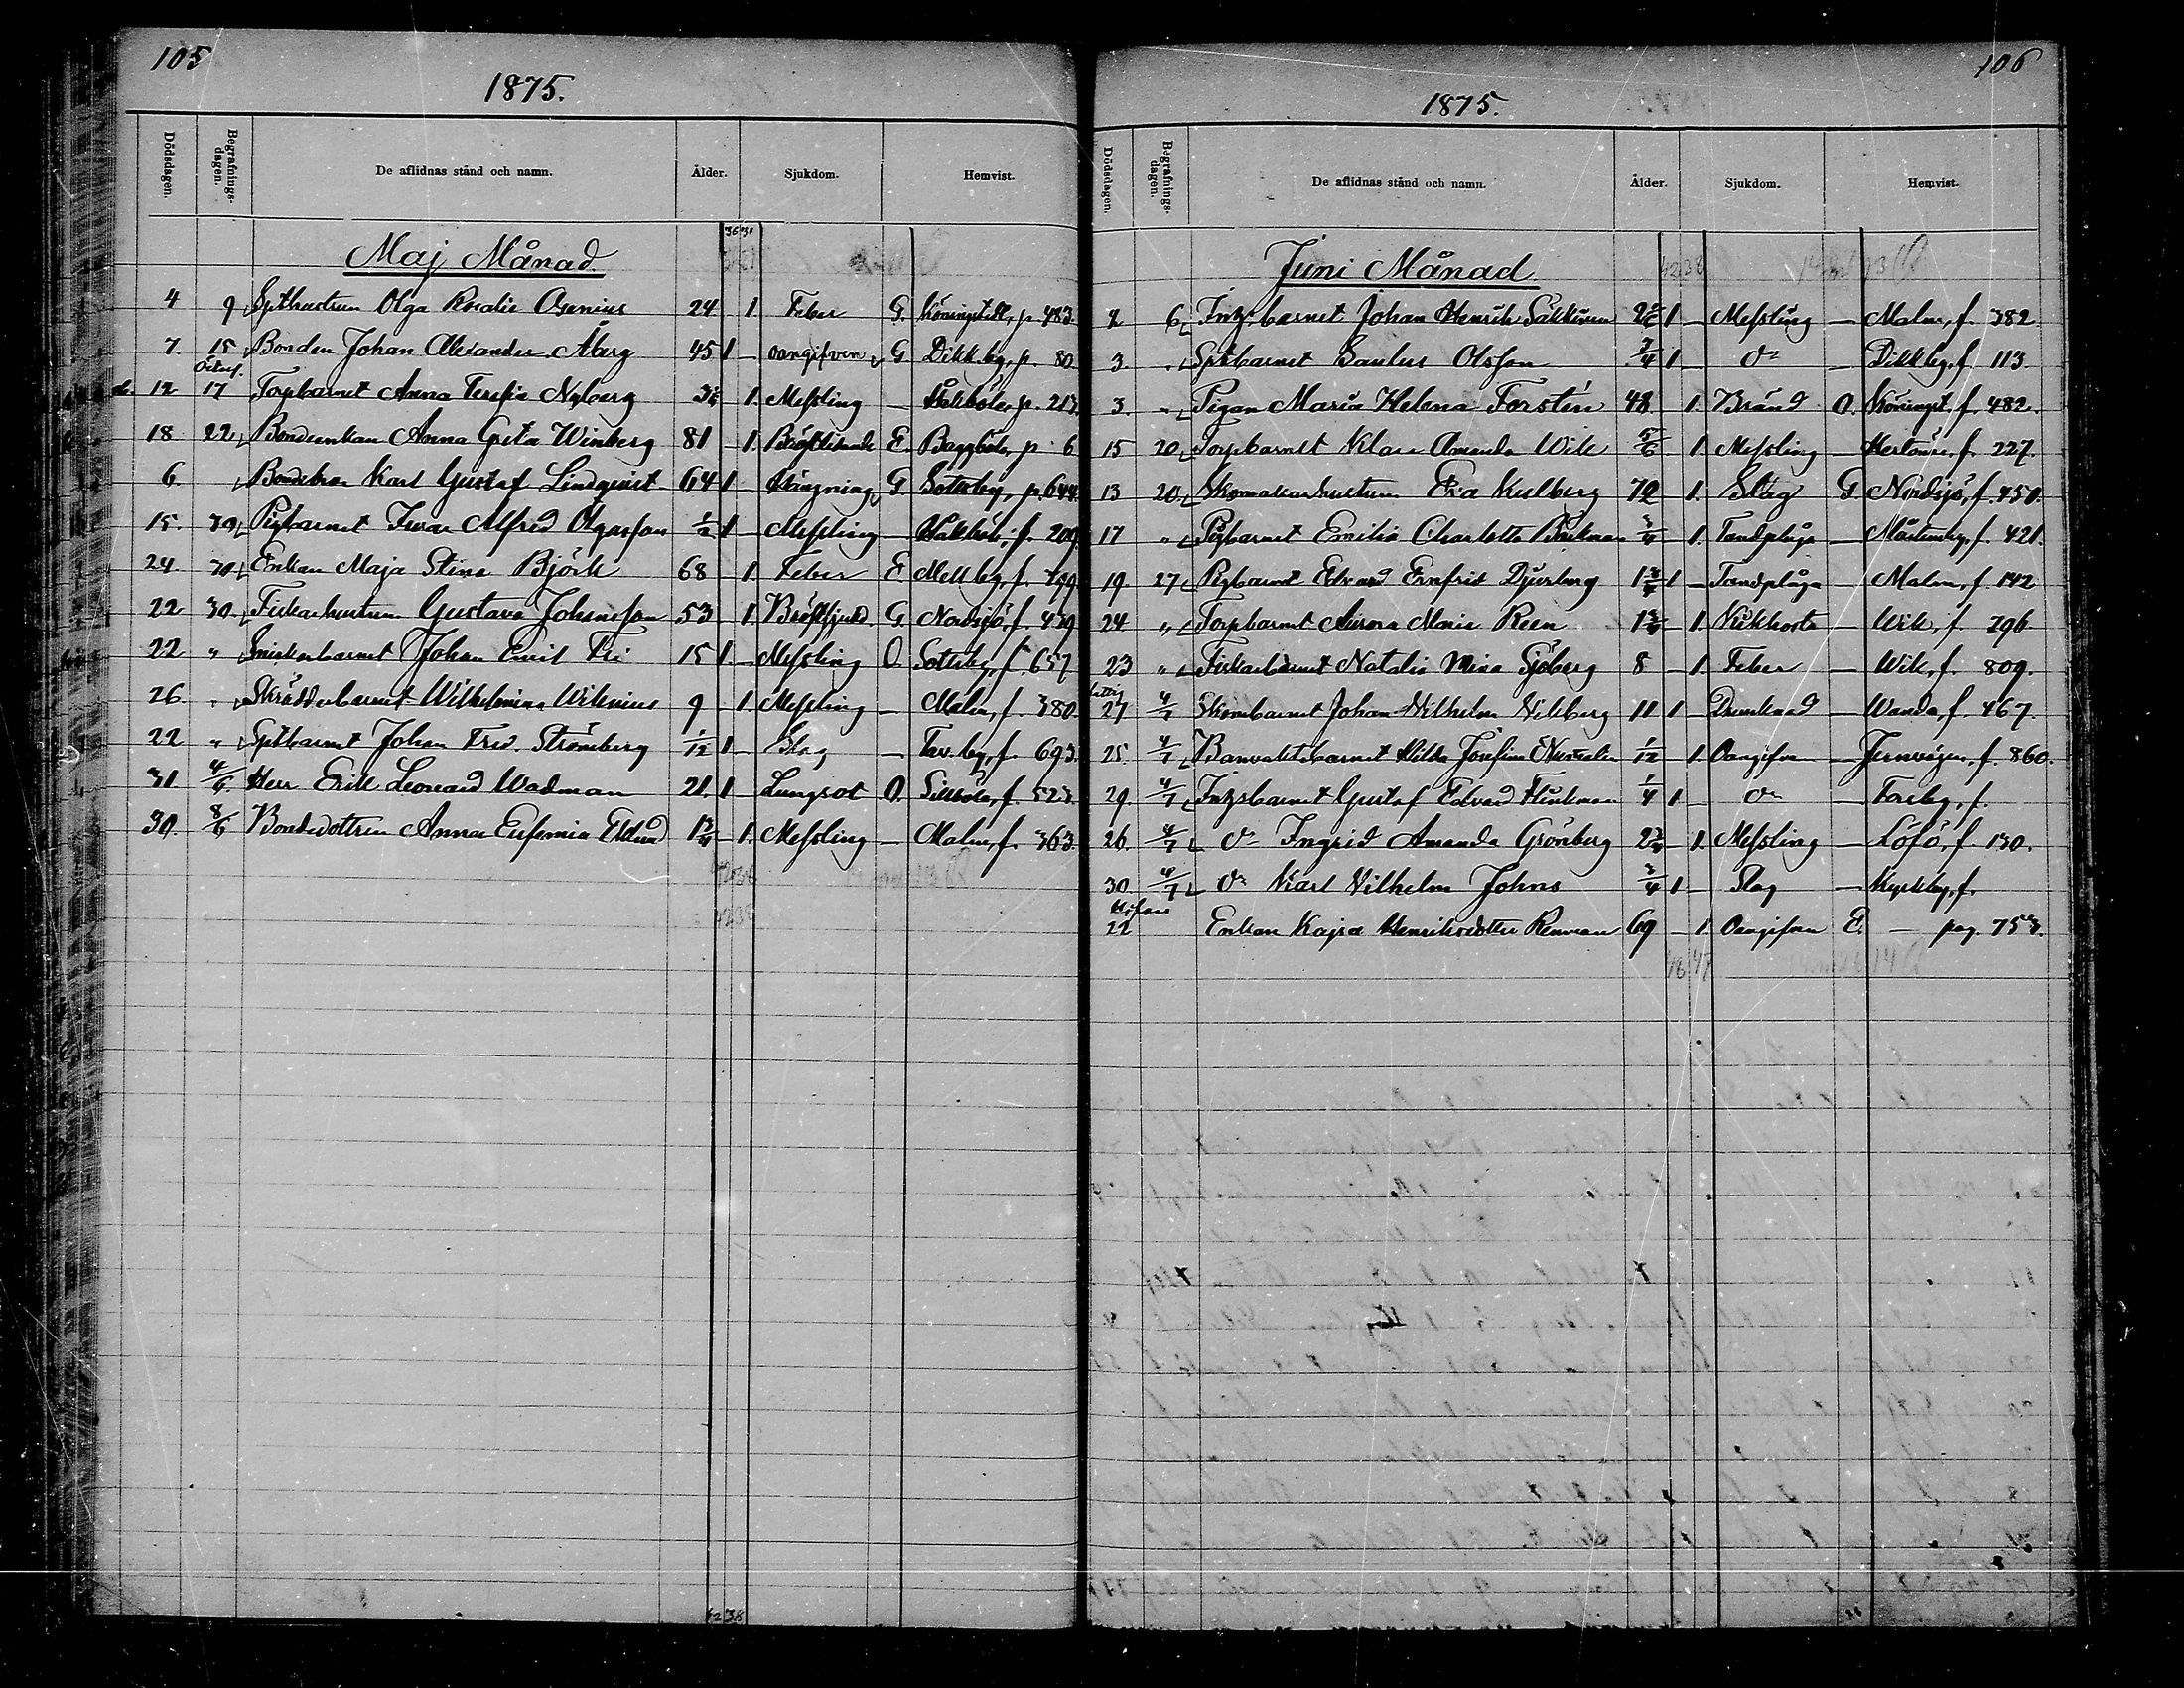 105
1875.
Dödsdagen. Begrafnings-dagen. De aflidnas stånd och namn. Ålder. Sjukdom. Hemvist.
36 31
Maj Månad.
4 9 Spthustrun Olga Rosalie Asenius 24 1 Feber G. p. 483.
7. 15 Bonden Johan Alexander Åberg 45 1 — oangifven G Dikkby, p. 80
12 17 Torpbarnet Anna Teresia Nyberg 1. Messling — Håkböle, p. 213
18 22 Bondeenkan Anna Greta Winberg 81 — 1. E. Baggböle, p 6
6 Karl Gustaf Lindqvist 64 1 — G Sottby, p. 644.
15. 30 Pigbarnet Ivar Alfred Olgasson 1/2 1 — Messling — Håkböle, f. 209
24. 30 Enkan Maja Stina Björk 68 — 1. Feber E. Mellby, f. 799
22 30. Fiskarhustrun Gustava Johansson 53 1. Bröstsjukd. G. Nordsjö, f. 439
22 " Snickarbarnet Johan Emil Fri 15 1 — Messling O. Sottby, f. 657
26. " Skräddarbarnet Wilhelmina Wilenius 9 — 1. Messling — Malm, f. 380.
22 " Sptbarnet Johan Fred. Strömberg 1/12 1 — Slag — Tav.by, f. 693.
31 4/6. Herr Erik Leonard Wadman 21. 1 Lungsot O. Sillböle, f. 523.
30. 8/6 Bondedottren Anna Eufemia Eklund 1 3/4 — 1. Messling — Malm, f. 363.
42 38
42 38
106
1875.
Dödsdagen. Begrafnings-dagen. De aflidnas stånd och namn. Ålder. Sjukdom. Hemvist.
Juni Månad
42 38
2 6 Inhys.barnet Johan Henrik 1 — Messling — Malm, f. 382
3. " Sptbarnet Paulus Olsson 3/4 1 — Do — Dikkby, f. 113
3. " Pigan Maria Helena Forstén 48 1. Bränd O. f. 482.
15 20 Torpbarnet Klara Amanda Wik 5/6 1. Messling — Hertonäs, f. 227.
13 20 Skomakarhustrun Eva Kulberg 72 1. Slag G. Nordsjö, f. 450.
17 " Pigbarnet Emilia Charlotta Bäckman 3/4 — 1. Tandplåga — Mårtensby, f. 421.
19 27 Pigbarnet Edvard Ernfrid Djurberg 1 3/4 1 — Tandplåga — Malm, f. 142
24 " Torpbarnet Aurora Maria Reen 1 3/4 — 1. Kikhosta — Wik, f. 796.
23 " Fiskarbarnet Natalia Mina Sjöberg 8 — 1. Feber — Wik, f. 809.
27 4/7 Skombarnet Johan Wilhelm Wikberg 11 1 — Drunknad — Wanda, f. 467.
25. 4/7 Banvaktsbarnet Hilda Josefina 1/12 — 1. Oangifven — Jernvägen, f. 860.
29. 4/7 Inhysbarnet Gustaf Edvard Flinkman 1/4 1 — Do — Forsby, f.
26. 4/7 Do Ingrid Amanda Grönberg 2 3/4 — 1. Messling — Löfö, f. 130.
30. 4/7 Do Karl Vilhelm Johns 3/4 1 — Slag — Kyrkby, f.
22 Enkan Kajsa Henriksdotter 69 — 1. Oangifven E. — pag. 753.
46 47